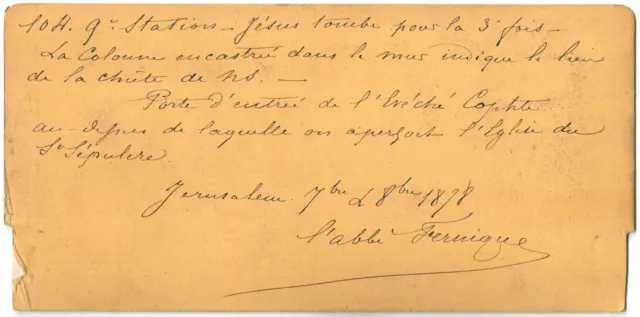 104. 9e Station – Jésus tombe pour la 3e fois –
La Colonne encastrée dans le mur indique le lieu
de la chûte de NS. –
Porte d'entrée de l'Evêché Cophte
au-dessus de laquelle on aperçoit l'Eglise du
St Sépulcre
Jerusalem 7bre & 8bre 1878
l'abbé Fernique